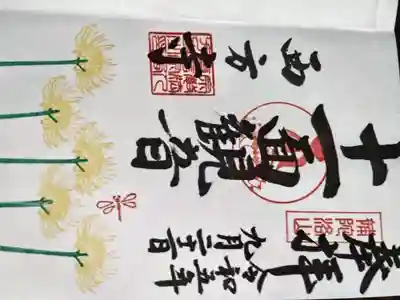 奉拝
令和五年
九月二十三日
補陀洛山
十一面観音
西方寺